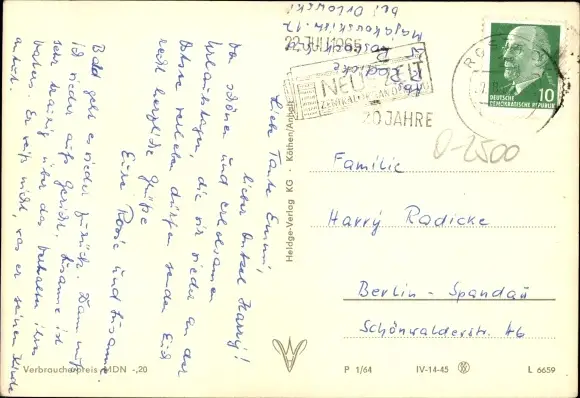 Liebe Tante Emmi,
lieber Onkel Harry!
Das schöne und erholsamen
Urlaubstagen, die wir wieder an der
Ostsee verleben dürfen senden Euch
recht herzliche Grüße
Eure Rosi und Susanne
Bald geht es wieder zurück. Dann muß
ich wieder aufs Gericht. Susanne ist
sehr traurig über das Verhalten ihres
Vaters. Er weiß nicht, was er seinem Kinde
antut.
Radicke
bei Orlowski
22 JULI 1965
NEUE ZEIT
20 JAHRE
ROSTOCK
10
DEUTSCHE
DEMOKRATISCHE REPUBLIK
O-2500
Familie
Harry Radicke
Berlin - Spandau
Schönwalderstr. 46
Heldge-Verlag KG · Köthen/Anhalt
Verbraucherpreis MDN -,20
P 1/64 IV-14-45 L 6659